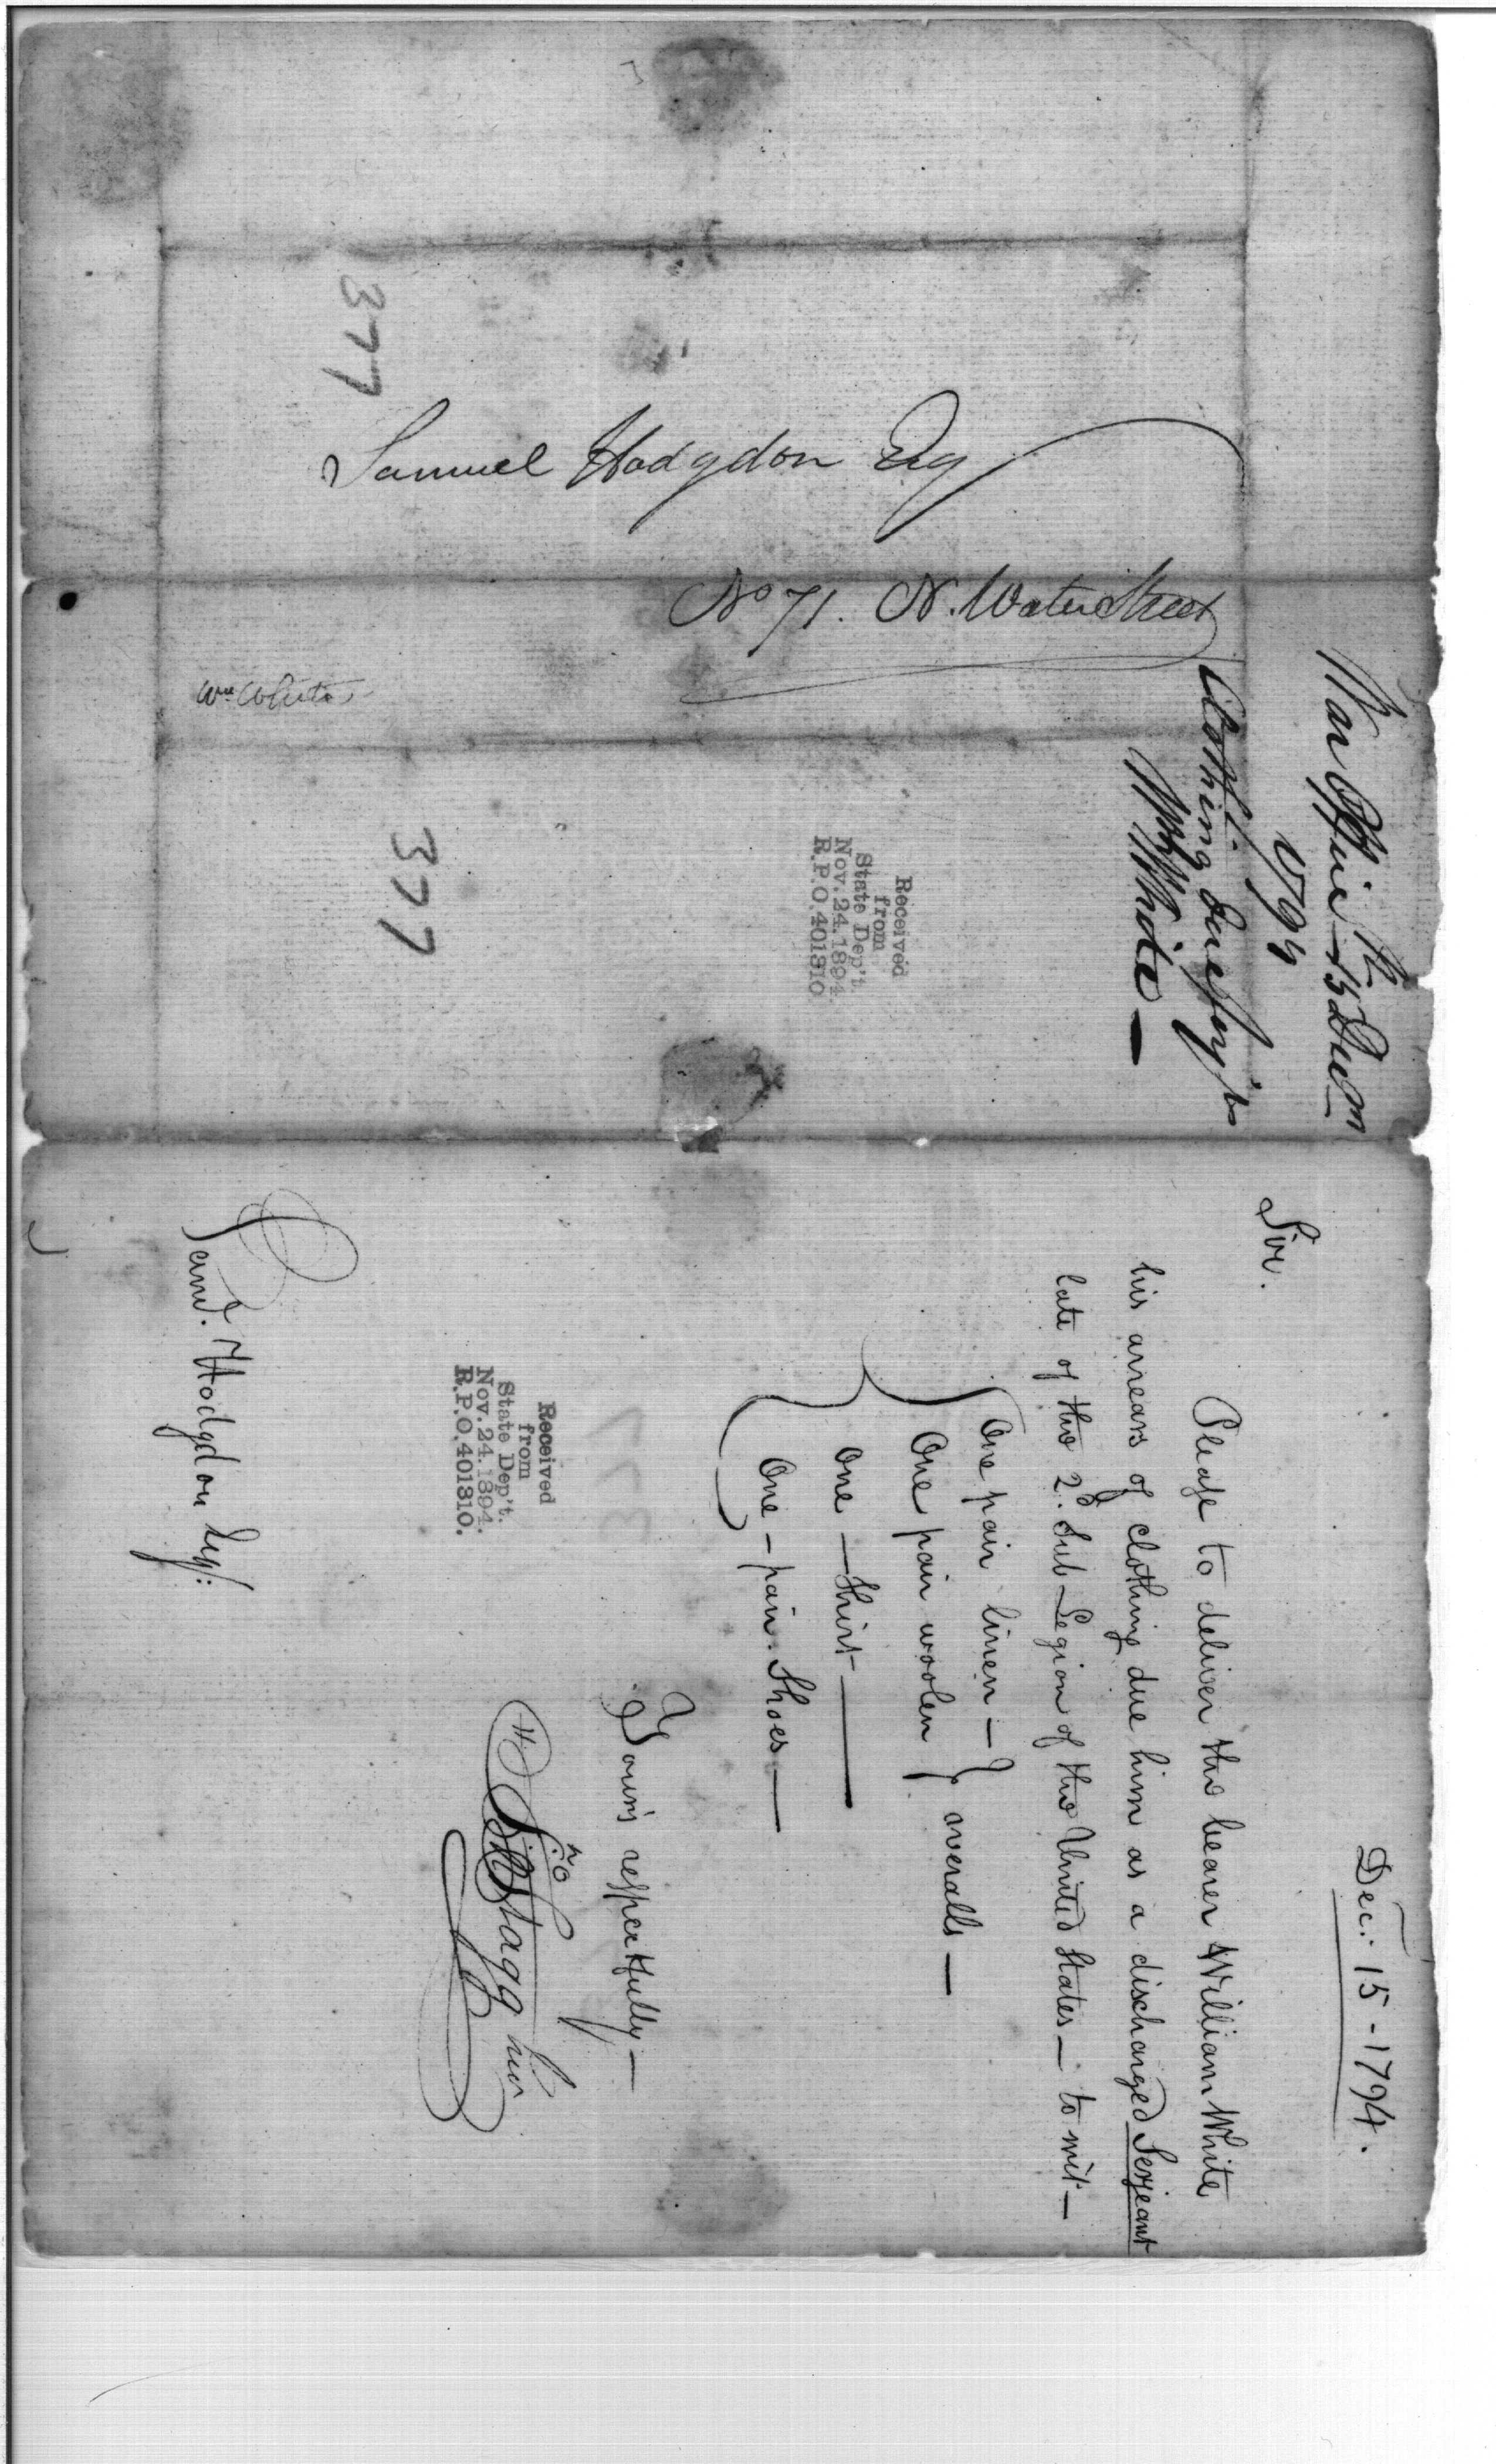 Samuel Hodgdon Esq
No 71. N. Water Street
377
Wm White
War Office 15 Decem
1794
Clothing due Serjt
Wm White —
Received
from
State Dep't.
Nov. 24. 1894.
R.P.O. 401310.
377
Dec: 15 - 1794.
Sir.
Please to deliver the bearer William White
his arrears of clothing due him as a discharged Serjeant
late of the 2d. Sub-Legion of the United States — to wit —
One pair linen —
One pair woolen } overalls —
One — Shirt —
One — pair. Shoes —
Yours respectfully —
Jno Stagg Junr
Received
from
State Dep't.
Nov. 24. 1894.
R.P.O. 401310.
Saml. Hodgdon Esq: